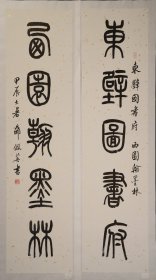 東壁圖書府
東壁图書府 西園翰墨林
西園翰墨林
甲辰大暑
書